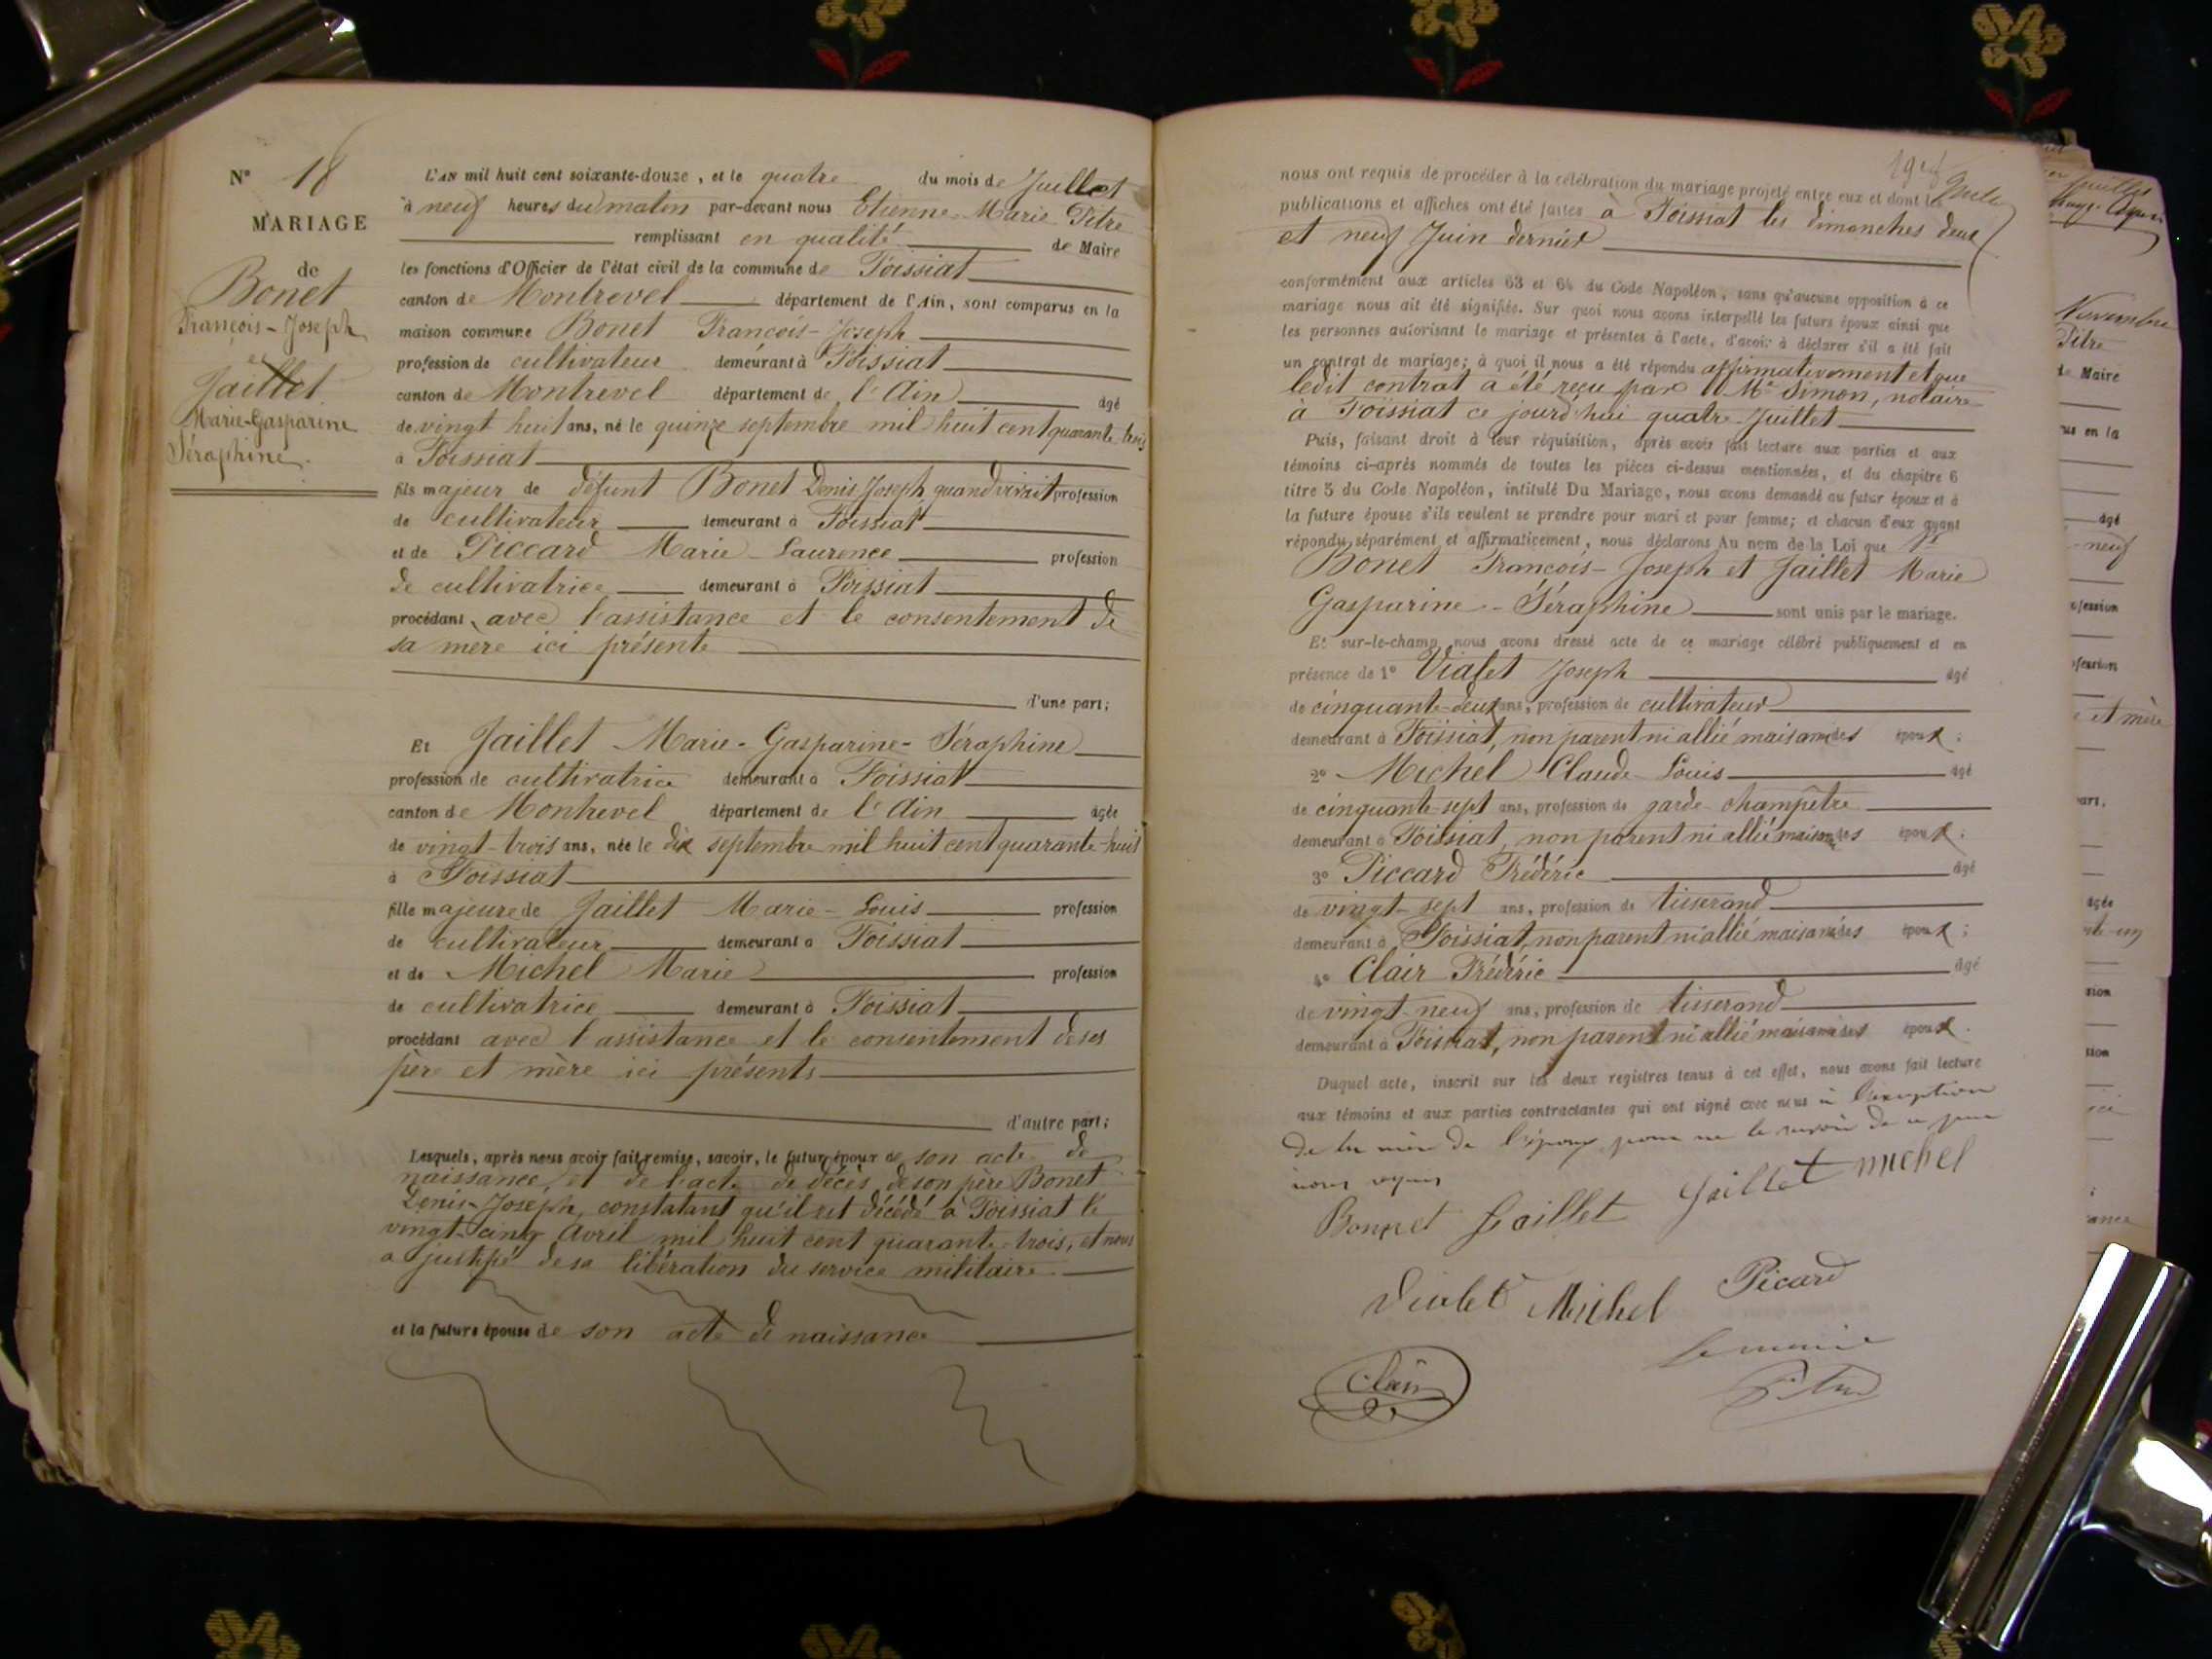 N° 18
MARIAGE
de
Bonet
François-Joseph
et
Jaillet
Marie-Gasparine
Séraphine.
L'AN mil huit cent soixante-douze, et le quatre du mois de Juillet
à neuf heures du matin par-devant nous Etienne-Marie Pitre
remplissant en qualité de Maire
les fonctions d'Officier de l'état civil de la commune de Foissiat
canton de Montrevel département de l'Ain, sont comparus en la
maison commune Bonet François-Joseph
profession de cultivateur demeurant à Foissiat
canton de Montrevel département de l'Ain âgé
de vingt huit ans, né le quinze septembre mil huit cent quarante trois
à Foissiat
fils majeur de défunt Bonet Denis Joseph quand vivait profession
de cultivateur demeurant à Foissiat
et de Piccard Marie-Laurence profession
de cultivatrice demeurant à Foissiat
procédant avec l'assistance et le consentement de
sa mère ici présente
d'une part;
Et Jaillet Marie-Gasparine-Séraphine
profession de cultivatrice demeurant à Foissiat
canton de Montrevel département de l'Ain âgée
de vingt-trois ans, née le dix septembre mil huit cent quarante-huit
à Foissiat
fille majeure de Jaillet Marie-Louis profession
de cultivateur demeurant à Foissiat
et de Michel Marie profession
de cultivatrice demeurant à Foissiat
procédant avec l'assistance et le consentement de ses
père et mère ici présents
d'autre part;
Lesquels, après nous avoir fait remise, savoir, le futur époux de son acte de
naissance, et de l'acte de décès de son père Bonet
Denis-Joseph, constatant qu'il est décédé à Foissiat le
vingt-cinq Avril mil huit cent quarante-trois, et nous
a justifié de sa libération du service militaire
et la future épouse de son acte de naissance
nous ont requis de procéder à la célébration du mariage projeté entre eux et dont les
publications et affiches ont été faites à Foissiat les dimanches deux
et neuf Juin dernier
conformément aux articles 63 et 64 du Code Napoléon, sans qu'aucune opposition à ce
mariage nous ait été signifiée. Sur quoi nous avons interpellé les futurs époux ainsi que
les personnes autorisant le mariage et présentes à l'acte, d'avoir à déclarer s'il a été fait
un contrat de mariage; à quoi il nous a été répondu affirmativement et que
ledit contrat a été reçu par Me Simon, notaire
à Foissiat ce jourd'hui quatre Juillet
Puis, faisant droit à leur réquisition, après avoir fait lecture aux parties et aux
témoins ci-après nommés de toutes les pièces ci-dessus mentionnées, et du chapitre 6
titre 5 du Code Napoléon, intitulé Du Mariage, nous avons demandé au futur époux et à
la future épouse s'ils veulent se prendre pour mari et pour femme; et chacun d'eux ayant
répondu séparément et affirmativement, nous déclarons Au nom de la Loi que
Bonet François-Joseph et Jaillet Marie
Gasparine-Séraphine sont unis par le mariage.
Et sur-le-champ nous avons dressé acte de ce mariage célébré publiquement et en
présence de 1° Vialet Joseph âgé
de cinquante-deux ans, profession de cultivateur
demeurant à Foissiat, non parent ni allié mais ami des époux;
2° Michel Claude-Louis âgé
de cinquante-sept ans, profession de garde-champêtre
demeurant à Foissiat, non parent ni allié mais ami des époux;
3° Piccard Frédéric âgé
de vingt-sept ans, profession de tisserand
demeurant à Foissiat, non parent ni allié mais ami des époux;
4° Clair Frédéric âgé
de vingt-neuf ans, profession de tisserand
demeurant à Foissiat, non parent ni allié mais ami des époux.
Duquel acte, inscrit sur les deux registres tenus à cet effet, nous avons fait lecture
aux témoins et aux parties contractantes qui ont signé avec nous à l'exception
de la mère de l'époux pour ne le savoir de ce par
nous requis
Bonnet Jaillet Jaillet Michel
Violet Michel Picard
Clair
Le maire
Pitre
Novembre
Pitre
de Maire
us en la
âgé
neuf
fession
et mère
part,
âgée
sion